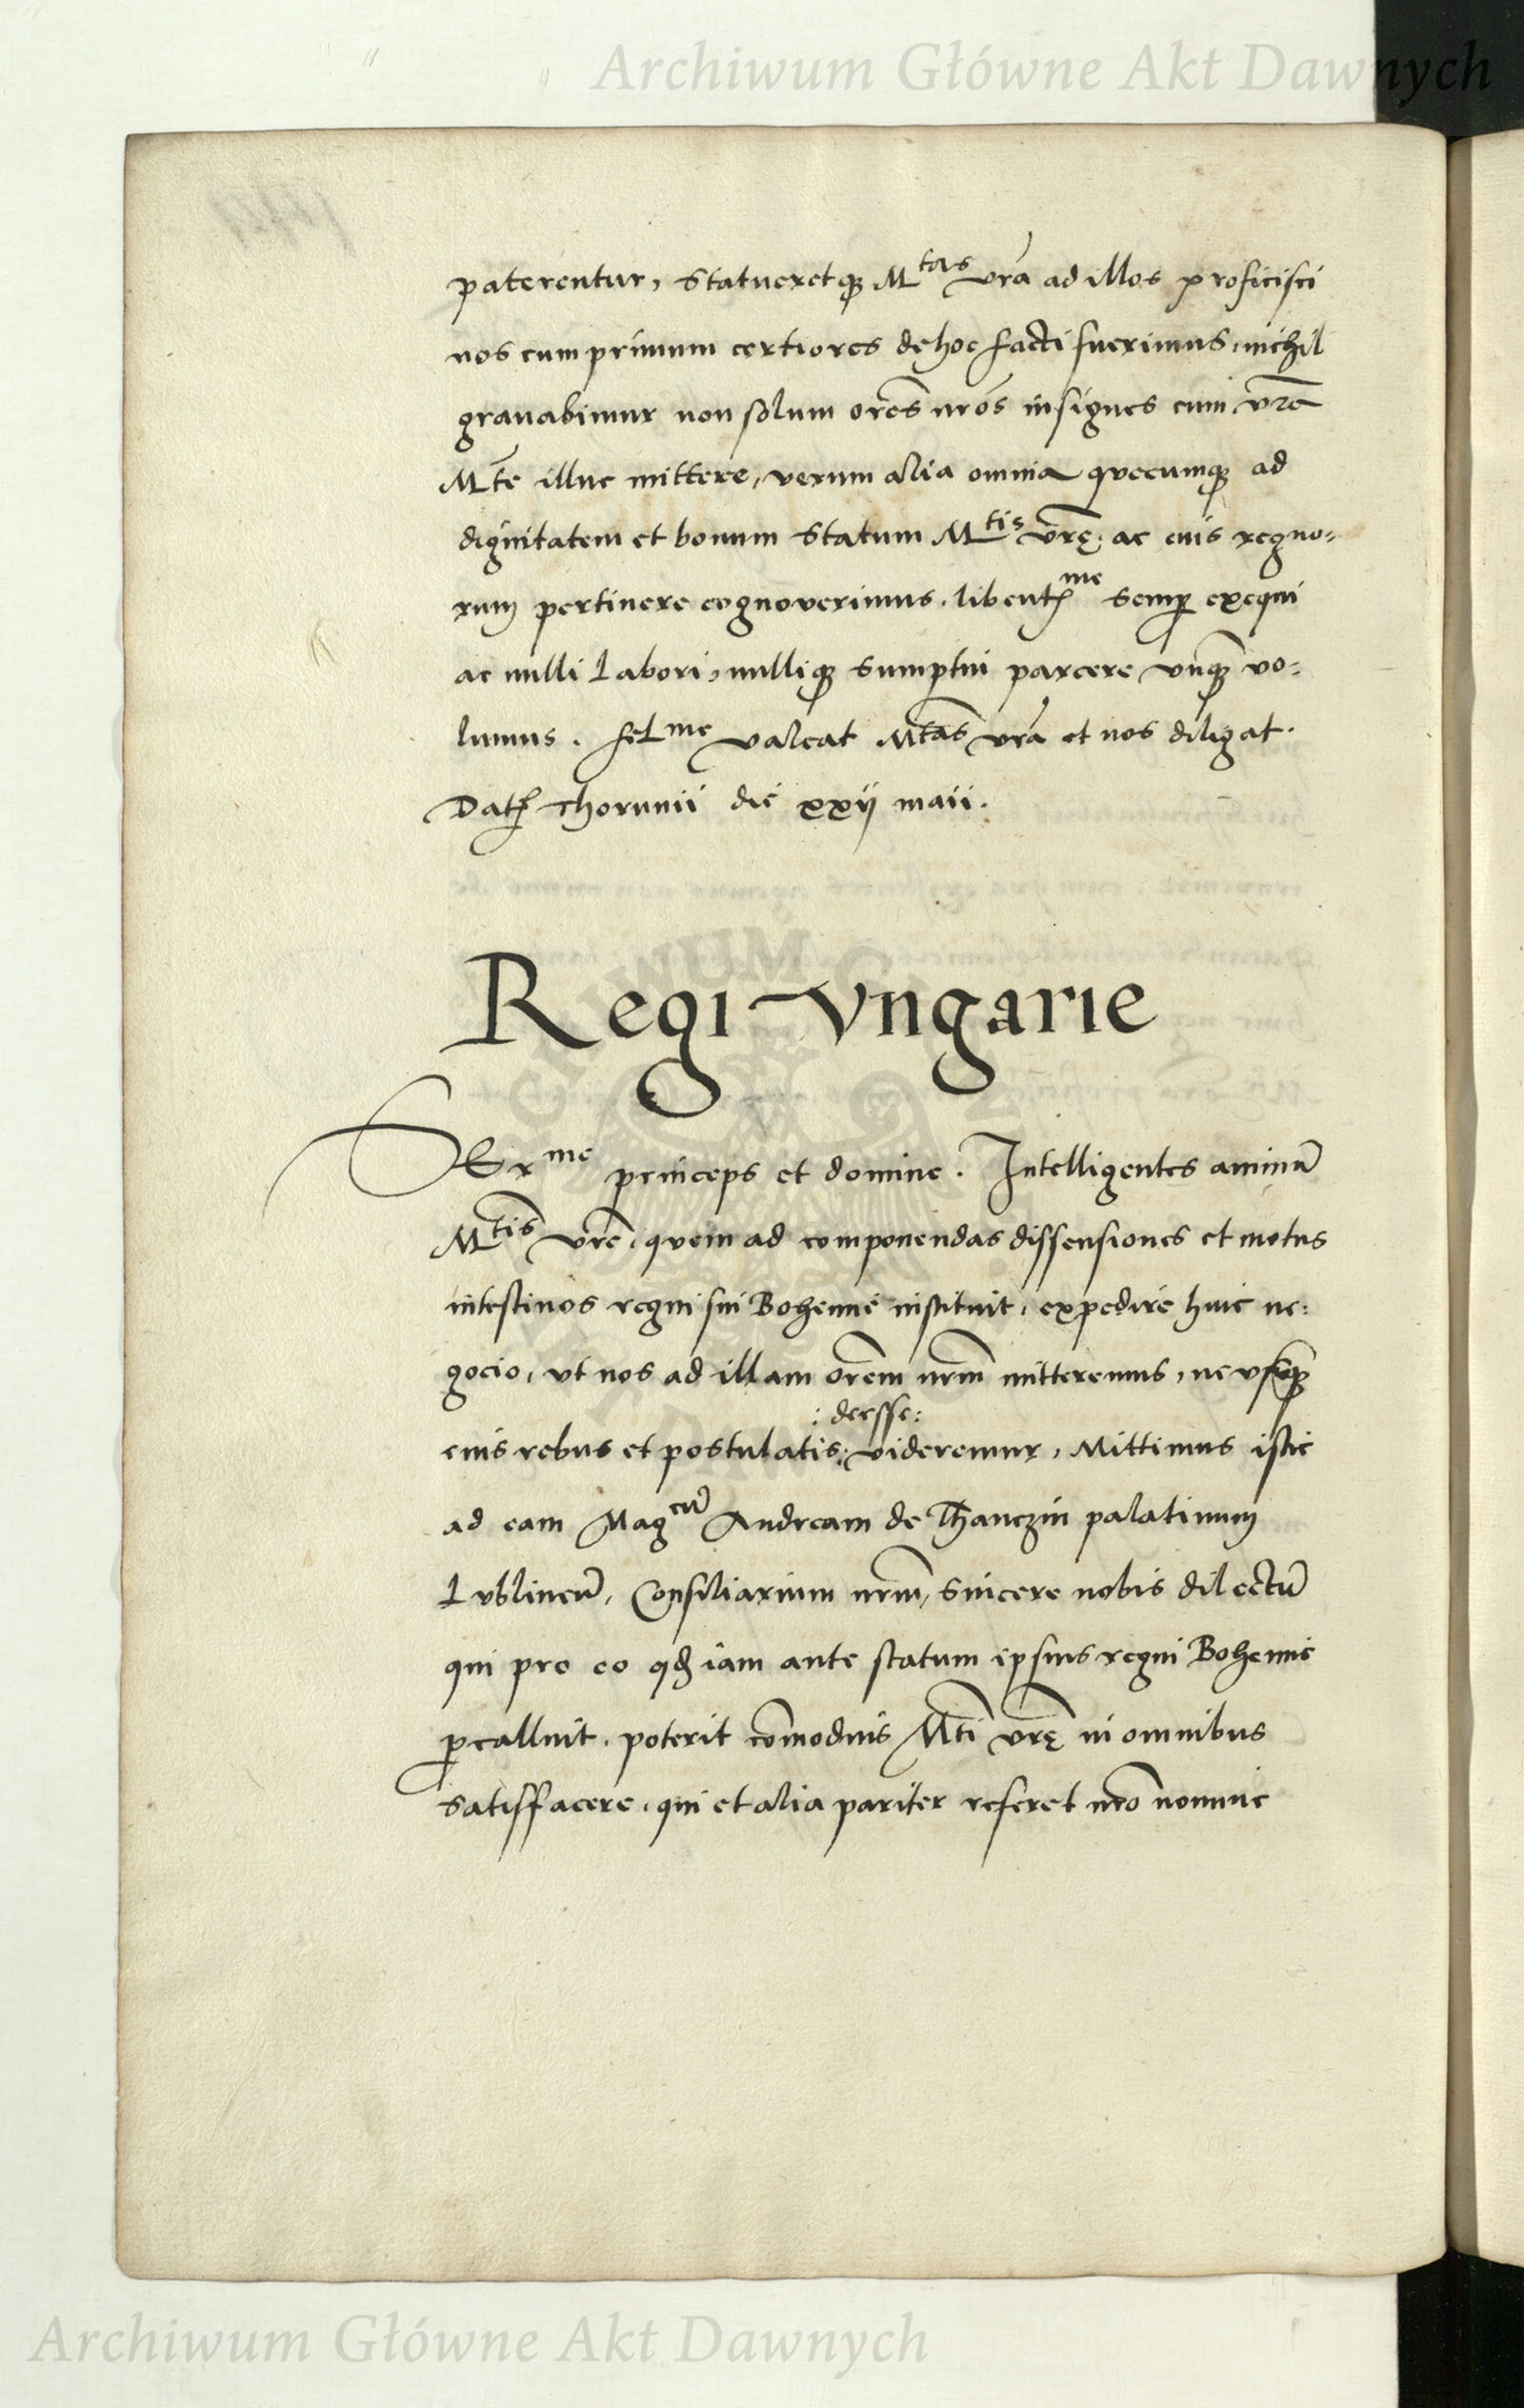 Archiwum Główne Akt Dawnych
paterentur, Statueretq₃ M^tas vr̃a ad illos proficisci
nos cum primum certiores de hoc facti fuerimus, nichil
grauabimur non solum or̃es nr̃os insignes cum vr̃a
M̃te illuc mittere, verum alia omnia quecumq₃ ad
dignitatem et bonum Statum M^tis vr̃ę, ac eius regno=
rum pertinere cognoverimus, libent^me semp̱ exequi
ac nulli Labori, nulliq₃ Sumptui parcere vnq̃₃ vo=
lumus. fel^me valeat M^tas vr̃a et nos diligat.
Dat₃ Thorunii die xxij maii.
Regi Vngarie
SEr^me princeps et domine. Intelligentes animũ
M^tis vr̃e, quem ad componendas dissensiones et motus
intestinos regni sui Bohemie instituit, expedire huic ne=
gocio, vt nos ad illam or̃em nr̃m mitteremus, ne vsq₃
: deesse:
eius rebus et postulatis: videremur, Mittimus istic
ad eam Mag^cũ Andream de Thanczin palatinum
Lvblineñ, Consiliarium nr̃m, Sincere nobis dilectũ
qui pro eo qđ iam ante statum ipsius regni Bohemie
ꝑcalluit, poterit cõmodius M̃ti vr̃ę in omnibus
satisffacere, qui et alia pariter referet nr̃o nomine
Archiwum Główne Akt Dawnych